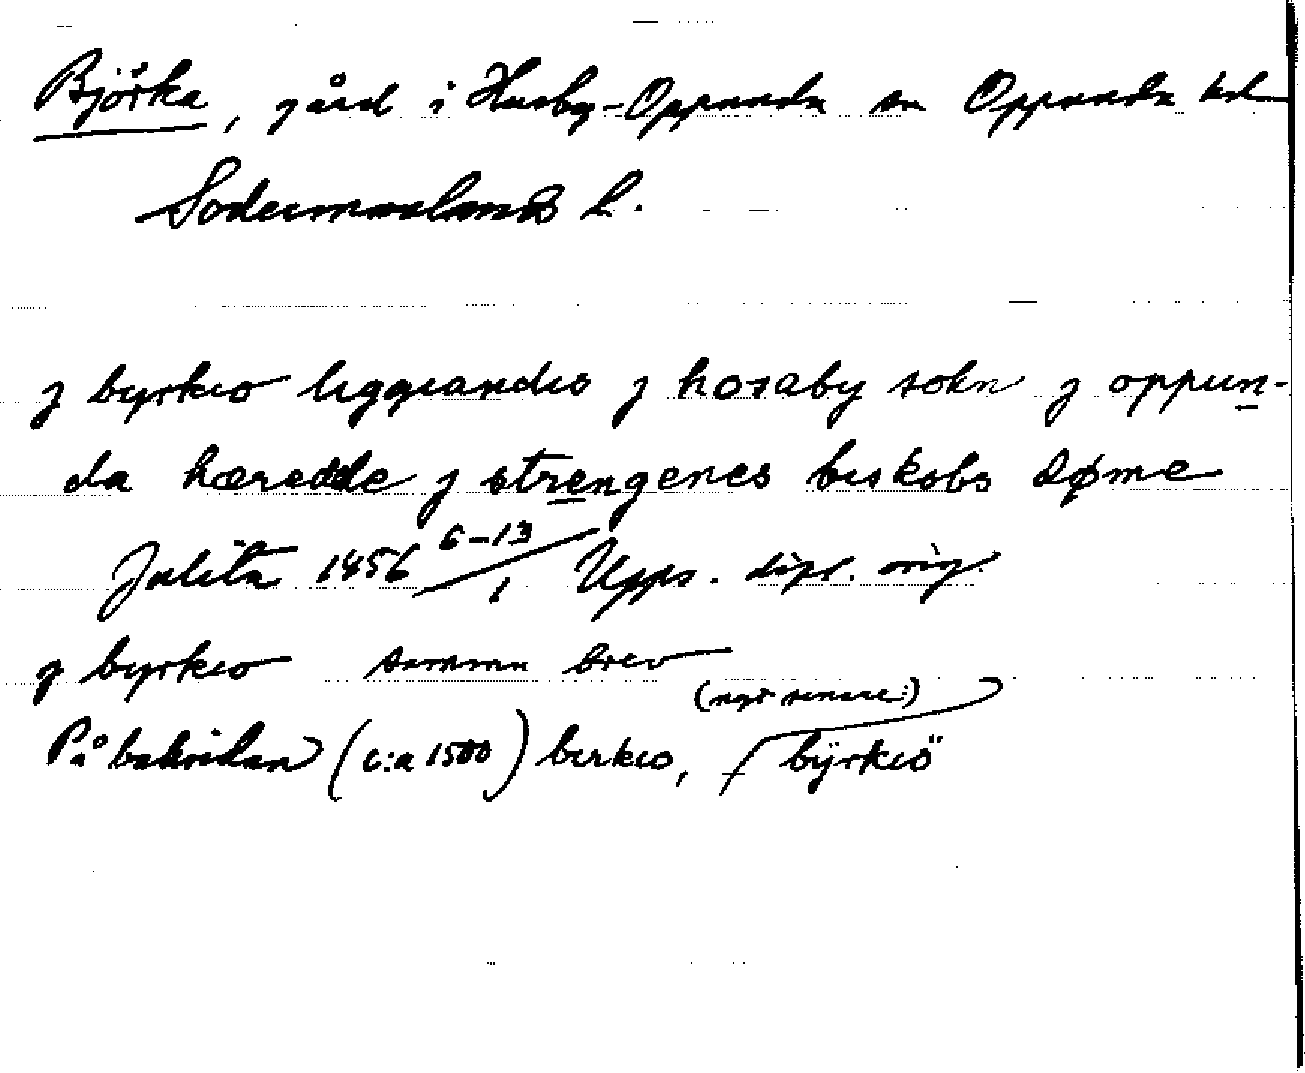 Björka, gård i Husby-Oppunda sn Oppunda hd
Södermanlands l.
j byrkio liggiandis j hosaby sokn j oppun-
da hæredde j strengenes biskobs døme
Julita 1456 6-13/1 Upps. dipl. orig.
j byrkio samma brev
(ngt senare:)
På baksidan (c:a 1500) birkio, byrkiö